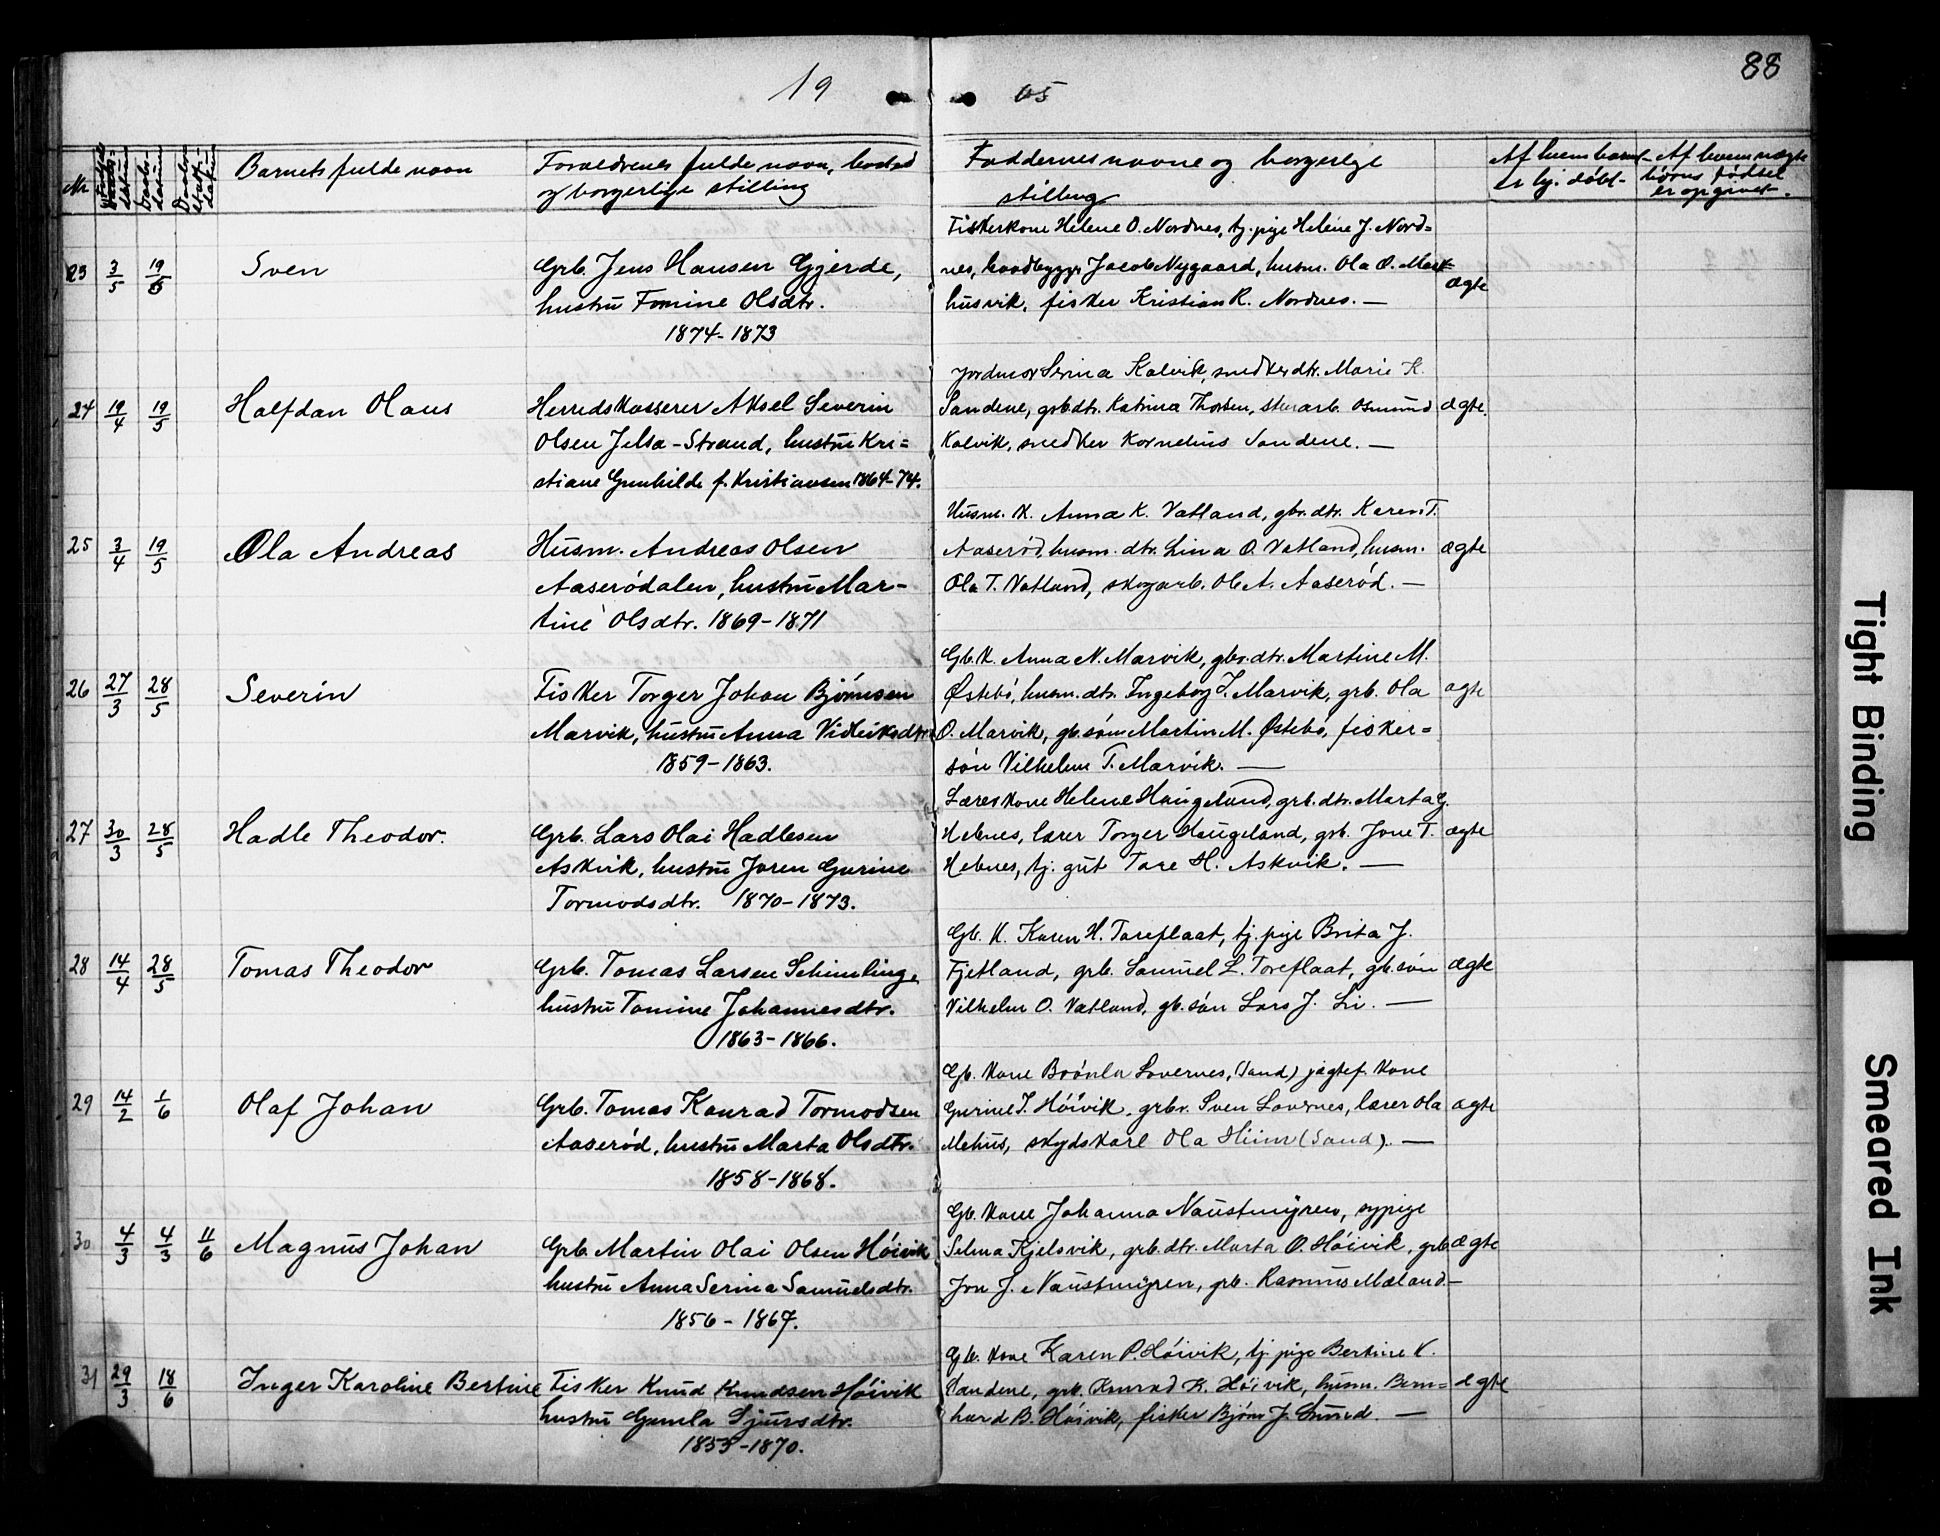 19 05
88
Nr
Daabs-
datum
Barnets fulde navn
Forældrenes fulde navn, bosted
og borgerlige stilling
Faddernes navne og borgerlige
stilling
Af hvem barnet
er hj. døbt
Af hvem uægte
børns fødsel
er opgivet
23 3/5 19/5 Sven
Grb. Jens Hansen Gjerde,
hustru Tomine Olsdtr.
1874-1873
Fiskerkone Helene O. Nordnes, tj. pige Helene J. Nord=
nes, baadbygger Jacob Nygaard, husm. Ola O. Mark=
husvik, fisker Kristian R. Nordnes. —
ægte
24 19/4 19/5 Halfdan Olaus
Herredskasserer Aksel Severin
Olsen Jelsa-Strand, hustru Kri=
stiane Gunhilde f. Kristiansen 1864-74.
Jordmor Serina Kalvik, snedkerdtr. Marie K.
Sandene, grb.dtr. Katrina Thorsen, stenarb. Osmund
Kalvik, snedker Kornelius Sandene. —
ægte.
25 3/4 19/5 Ola Andreas
Husm. Andreas Olsen
Aaserødalen, hustru Mar-
tine Olsdtr. 1869-1871
Husm. k. Anna K. Vatland, gbr. dtr. Karen T.
Aaserød, husm. dtr. Lina O. Vatland, husm.
Ola T. Vatland, skogarb. Ole A. Aaserød. —
ægte
26 27/3 28/5 Severin
Fisker Torger Johan Bjørnsen
Marvik, hustru Anna Vidleiksdtr.
1859-1863.
Gb. k. Anna N. Marvik, gbr. dtr. Martine M.
Østebø, husm. dtr. Ingeborg T. Marvik, grb. Ola
O. Marvik, gb. søn Martin M. Østebø, fisker=
søn Vilhelm T. Marvik. —
ægte
27 30/3 28/5 Hadle Theodor.
Grb. Lars Olai Hadlesen
Askvik, hustru Joren Gurine
Tormodsdtr. 1870-1873.
Læreskone Helene Haugeland, grb. dtr. Marta G.
Hebnes, lærer Torger Haugeland, grb. Jone T.
Hebnes, tj. gut Tore H. Askvik. —
ægte
28 14/4 28/5 Tomas Theodor
Grb. Tomas Larsen Schimling,
hustru Tomine Johannesdtr.
1863-1866.
Gb. k. Karen H. Toreflaat, tj. pige Brita J.
Fjetland, grb. Samuel L. Toreflaat, gb. søn
Vilhelm O. Vatland, gb. søn Lars J. Li. —
ægte
29 14/2 1/6 Olaf Johan
Grb. Tomas Konrad Tormodsen
Aaserød, hustru Marta Olsdtr.
1858-1868.
Gb. kone Brønla Lovernes, (Sand) jægtef. kone
Gurine T. Høivik, grbr. Sven Lovernes, lærer Ola
Mehus, skydskarl Ola Hiim (Sand). —
ægte
30 4/3 4/3 11/6 Magnus Johan
Grb. Martin Olai Olsen Høivik
hustru Anna Serina Samuelsdtr.
1856-1867.
Gb. kone Johanna Naustmyren, sypige
Selma Kjelsvik, grb. dtr. Marta O. Høivik, grb.
Jon J. Naustmyren, grb. Rasmus Mæland. —
ægte
31 29/3 18/6 Inger Karoline Bertine
Fisker Knud Knudsen Høivik
hustru Gunla Sjursdtr.
1855-1870.
Gb. kone Karen P. Høivik, tj. pige Bertine K.
Sandene, grb. Konrad K. Høivik, husm. Bern=
hard B. Høivik, fisker Bjørn J. —
ægte
Tight Binding
Smeared Ink